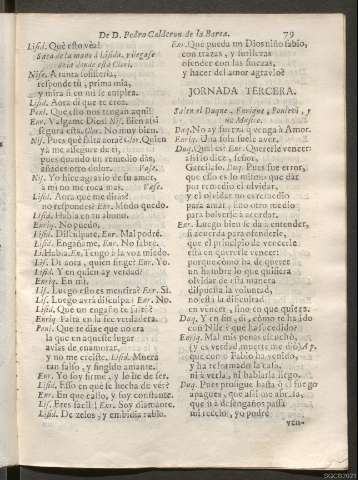 De D. Pedro Calderon de la Barca.
79
Lisid. Què esto vea!
Saca de la mano à Lisida, y llegase
donde està Clori.
Nise. A tanta
responde tu, prima mia,
y mira si en mi se emplea.
Lisid. Aora di que te crea.
Poni. Que esto nos tengan aqui!
Enr. Valgame Dios! Nis. Bien està
segura esta. Clor. No muy bien.
Nis. Pues què falta aora? Clor. Quien
ya me assegure de ti,
pues quando un remedio dàs,
añades otro dolor. Vase.
Nis. Yo hice agravio de su amor,
à mi no me toca mas. Vase.
Lisid. Aora que me diràs?
no respondes? Enr. Mudo quedo.
Lisid. Habla en tu abono.
Enriq. No puedo.
Lisid. Disculpate. Enr. Mal podrè.
Lisid. Engañame. Enr. No sabrè.
Li. Habla. En. Tengo à la voz miedo.
Lis. Di aora, quien finge? Enr. Yo.
Lisid. Y en quien ay verdad?
Enriq. En mi.
Lis. Luego esto es mentira? Enr. Si.
Lis. Luego avrà disculpa? Enr. No.
Lisid. Que un engaño te faltò?
Enriq. Falta en la fee verdadera.
Poni. Que te dixe que no era
la que en aqueste lugar
avias de enamorar,
y no me creiste. Lisid. Muera
tan falso, y fingido amante.
Enr. Yo soy firme, y lo he de ser.
Lisid. Esso en què se hecha de vèr?
Enr. En que callo, y soy constante.
Lis. Eres facil? Enr. Soy diamante.
Lisid. De zelos, y embidia rabio.
Enr. Què pueda un Dios niño sabio,
con trazas, y
ofender con las
y hacer del amor agravio!
JORNADA TERCERA.
Salen el Duque, Enrique, Ponlevi, y
un Musico.
Duq. No ay fuerza que venga à Amor.
Enriq. Una sola suele aver.
Duq. Qual es? Enr. Quererle vencer:
assi lo dice, señor,
Garcilaso. Duq. Pues fue error,
que esso es lo mismo que dàr
por remedio el olvidar,
y el olvidar no es remedio
para amar, sino otro medio
para bolverse à acordar.
Enr. Luego bien se dà à entender,
si acuerda para ofenderle,
que el principio de vencerle
està en quererle vencer:
porque como ha de querer
un hombre lo que quisiera
olvidar de esta manera
dispuesta la voluntad,
no està la dificultad
en vencer, sino en que quiera.
Duq. Y en fin, di, còmo te ha ido
con Nise? què ha sucedido?
Enriq. Mal mis penas escuchò,
(y es verdad, muerte me diò) Ap.
que como Fabio ha venido,
y ha reformado la casa,
ni à verla, ni hablarla llego.
Duq. Pues prosigue hasta que el fuego
apagues, que assi me abrasa,
que si à desengaños passa
mi rezelo, yo podrè
ven-
SGCB2021